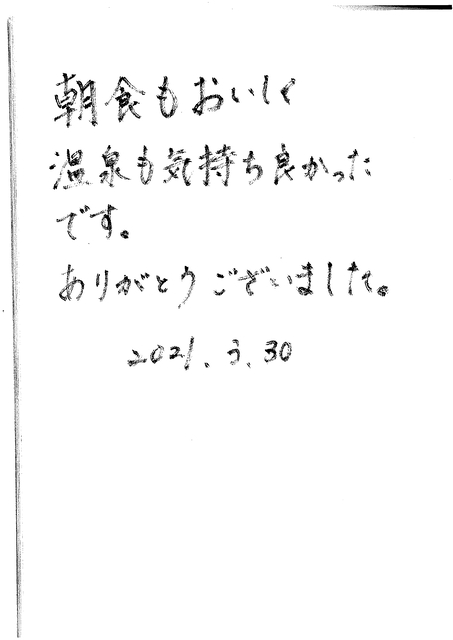 朝食もおいしく
温泉も気持ち良かった
です。
ありがとうございました。
2021.3.30